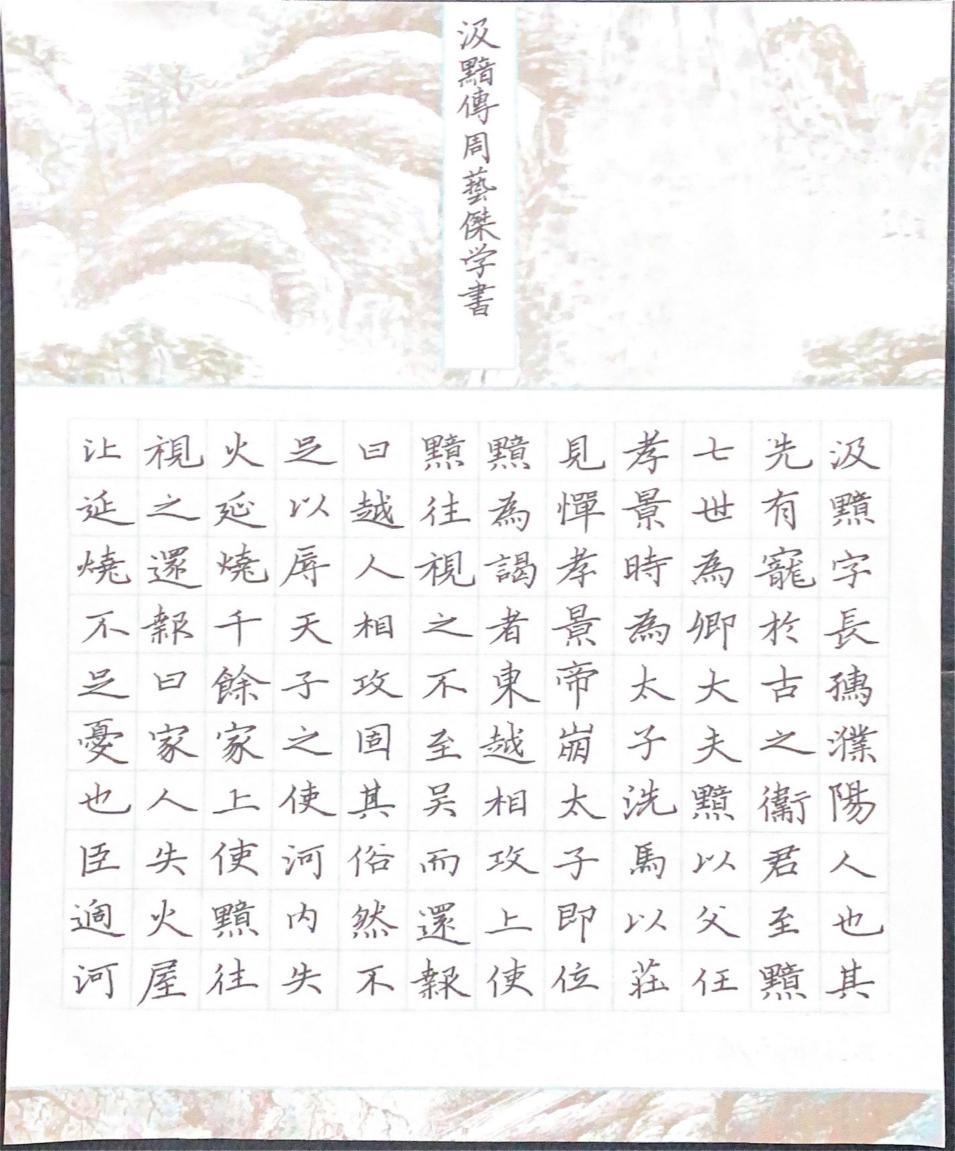 汲黯傳周藝傑学書
汲黯字長孺濮陽人也其
先有寵於古之衞君至黯
七世為卿大夫黯以父任
孝景時為太子洗馬以莊
見憚孝景帝崩太子即位
黯為謁者東越相攻上使
黯往視之不至吴而還報
曰越人相攻固其俗然不
足以辱天子之使河内失
火延燒千餘家上使黯往
視之還報曰家人失火屋
比延燒不足憂也臣過河